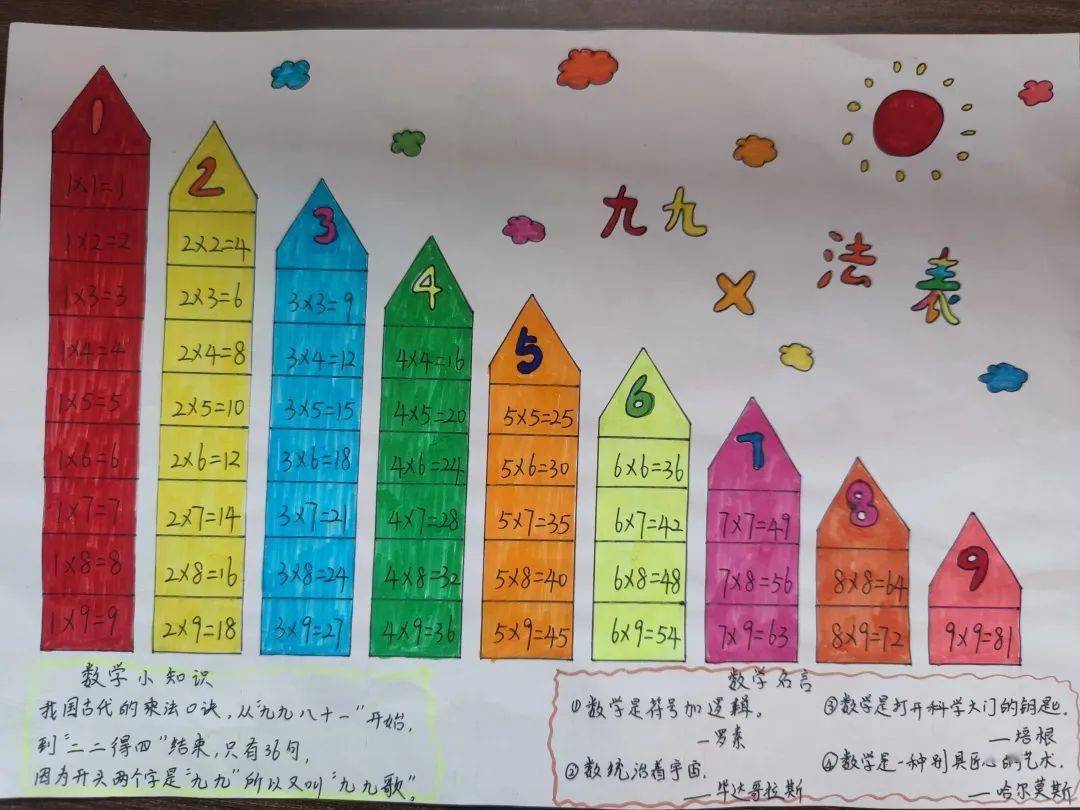 九九
×
法表
1
1×1=1
1×2=2
1×3=3
1×4=4
1×5=5
1×6=6
1×7=7
1×8=8
1×9=9
2
2×2=4
2×3=6
2×4=8
2×5=10
2×6=12
2×7=14
2×8=16
2×9=18
3
3×3=9
3×4=12
3×5=15
3×6=18
3×7=21
3×8=24
3×9=27
4
4×4=16
4×5=20
4×6=24
4×7=28
4×8=32
4×9=36
5
5×5=25
5×6=30
5×7=35
5×8=40
5×9=45
6
6×6=36
6×7=42
6×8=48
6×9=54
7
7×7=49
7×8=56
7×9=63
8
8×8=64
8×9=72
9
9×9=81
数学小知识
我国古代的乘法口诀，从“九九八十一”开始，
到“二二得四”结束，只有36句，
因为开头两个字是“九九”所以又叫“九九歌”。
数学名言
①数学是符号加逻辑。
—罗素
②数统治着宇宙。
—毕达哥拉斯
③数学是打开科学大门的钥匙。
—培根
④数学是一种别具匠心的艺术。
—哈尔莫斯